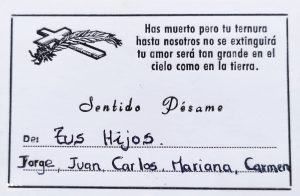 Has muerto pero tu ternura
hasta nosotros no se extinguirá
tu amor será tan grande en el
cielo como en la tierra.
Sentido Pésame
De: Tus Hijos.
Jorge, Juan, Carlos, Mariana, Carmen